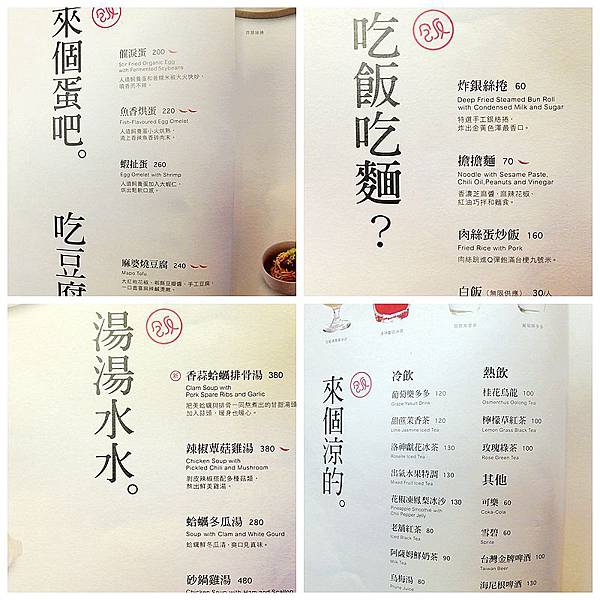 來個蛋吧。
催淚蛋 200
Stir Fried Organic Egg
with Fermented Soybeans
魚香烘蛋 220
Fish-Flavoured Egg Omelet
蝦扯蛋 260
Egg Omelet with Shrimp
吃豆腐
麻婆燒豆腐 240
Mapo Tofu
吃飯吃麵？
炸銀絲捲 60
Deep Fried Steamed Bun Roll
with Condensed Milk and Sugar
特選手工銀絲捲，
炸出金黃色澤最香口。
擔擔麵 70
Noodle with Sesame Paste,
Chili Oil,Peanuts and Vinegar
香濃芝麻醬，麻辣花椒，
紅油巧拌和麵食。
肉絲蛋炒飯 160
Fried Rice with Pork
肉絲跳進Q彈飽滿台梗九號米。
白飯（無限供應） 30/人
湯湯水水。
香蒜蛤蠣排骨湯 380
Clam Soup with
Pork Spare Ribs and Garlic
把美蛤蠣與排骨一同熬煮出的甘甜湯頭
加入蒜頭，暖身也暖心。
辣椒蕈菇雞湯 380
Chicken Soup with
Pickled Chili and Mushroom
剝皮辣椒搭配多種菇類，
熬出鮮美雞湯。
蛤蠣冬瓜湯 280
Soup with Clam and White Gourd
蛤蠣鮮冬瓜清，爽口見真味。
砂鍋雞湯 480
Chicken Soup with Ham and Scallop
來個涼的。
冷飲
葡萄樂多多 120
Grape Yakult Drink
甜蔗茉香茶 120
Lime Jasmine Iced Tea
洛神獻花冰茶 130
Roselle Iced Tea
出氣水果特調 130
Mixed Fruit Iced Tea
花椒凍鳳梨冰沙 130
Pineapple Smoothie with
Chili Pepper Jelly
老舖紅茶 80
Iced Black Tea
阿薩姆鮮奶茶 90
Milk Tea
烏梅湯 80
Prune Juice
熱飲
桂花烏龍 100
Osmanthus Oolong Tea
檸檬草紅茶 100
Lemon Grass Black Tea
玫瑰綠茶 100
Rose Green Tea
其他
可樂 60
Coka-Cola
雪碧 60
Sprite
台灣金牌啤酒 100
Taiwan Beer
海尼根啤酒 130